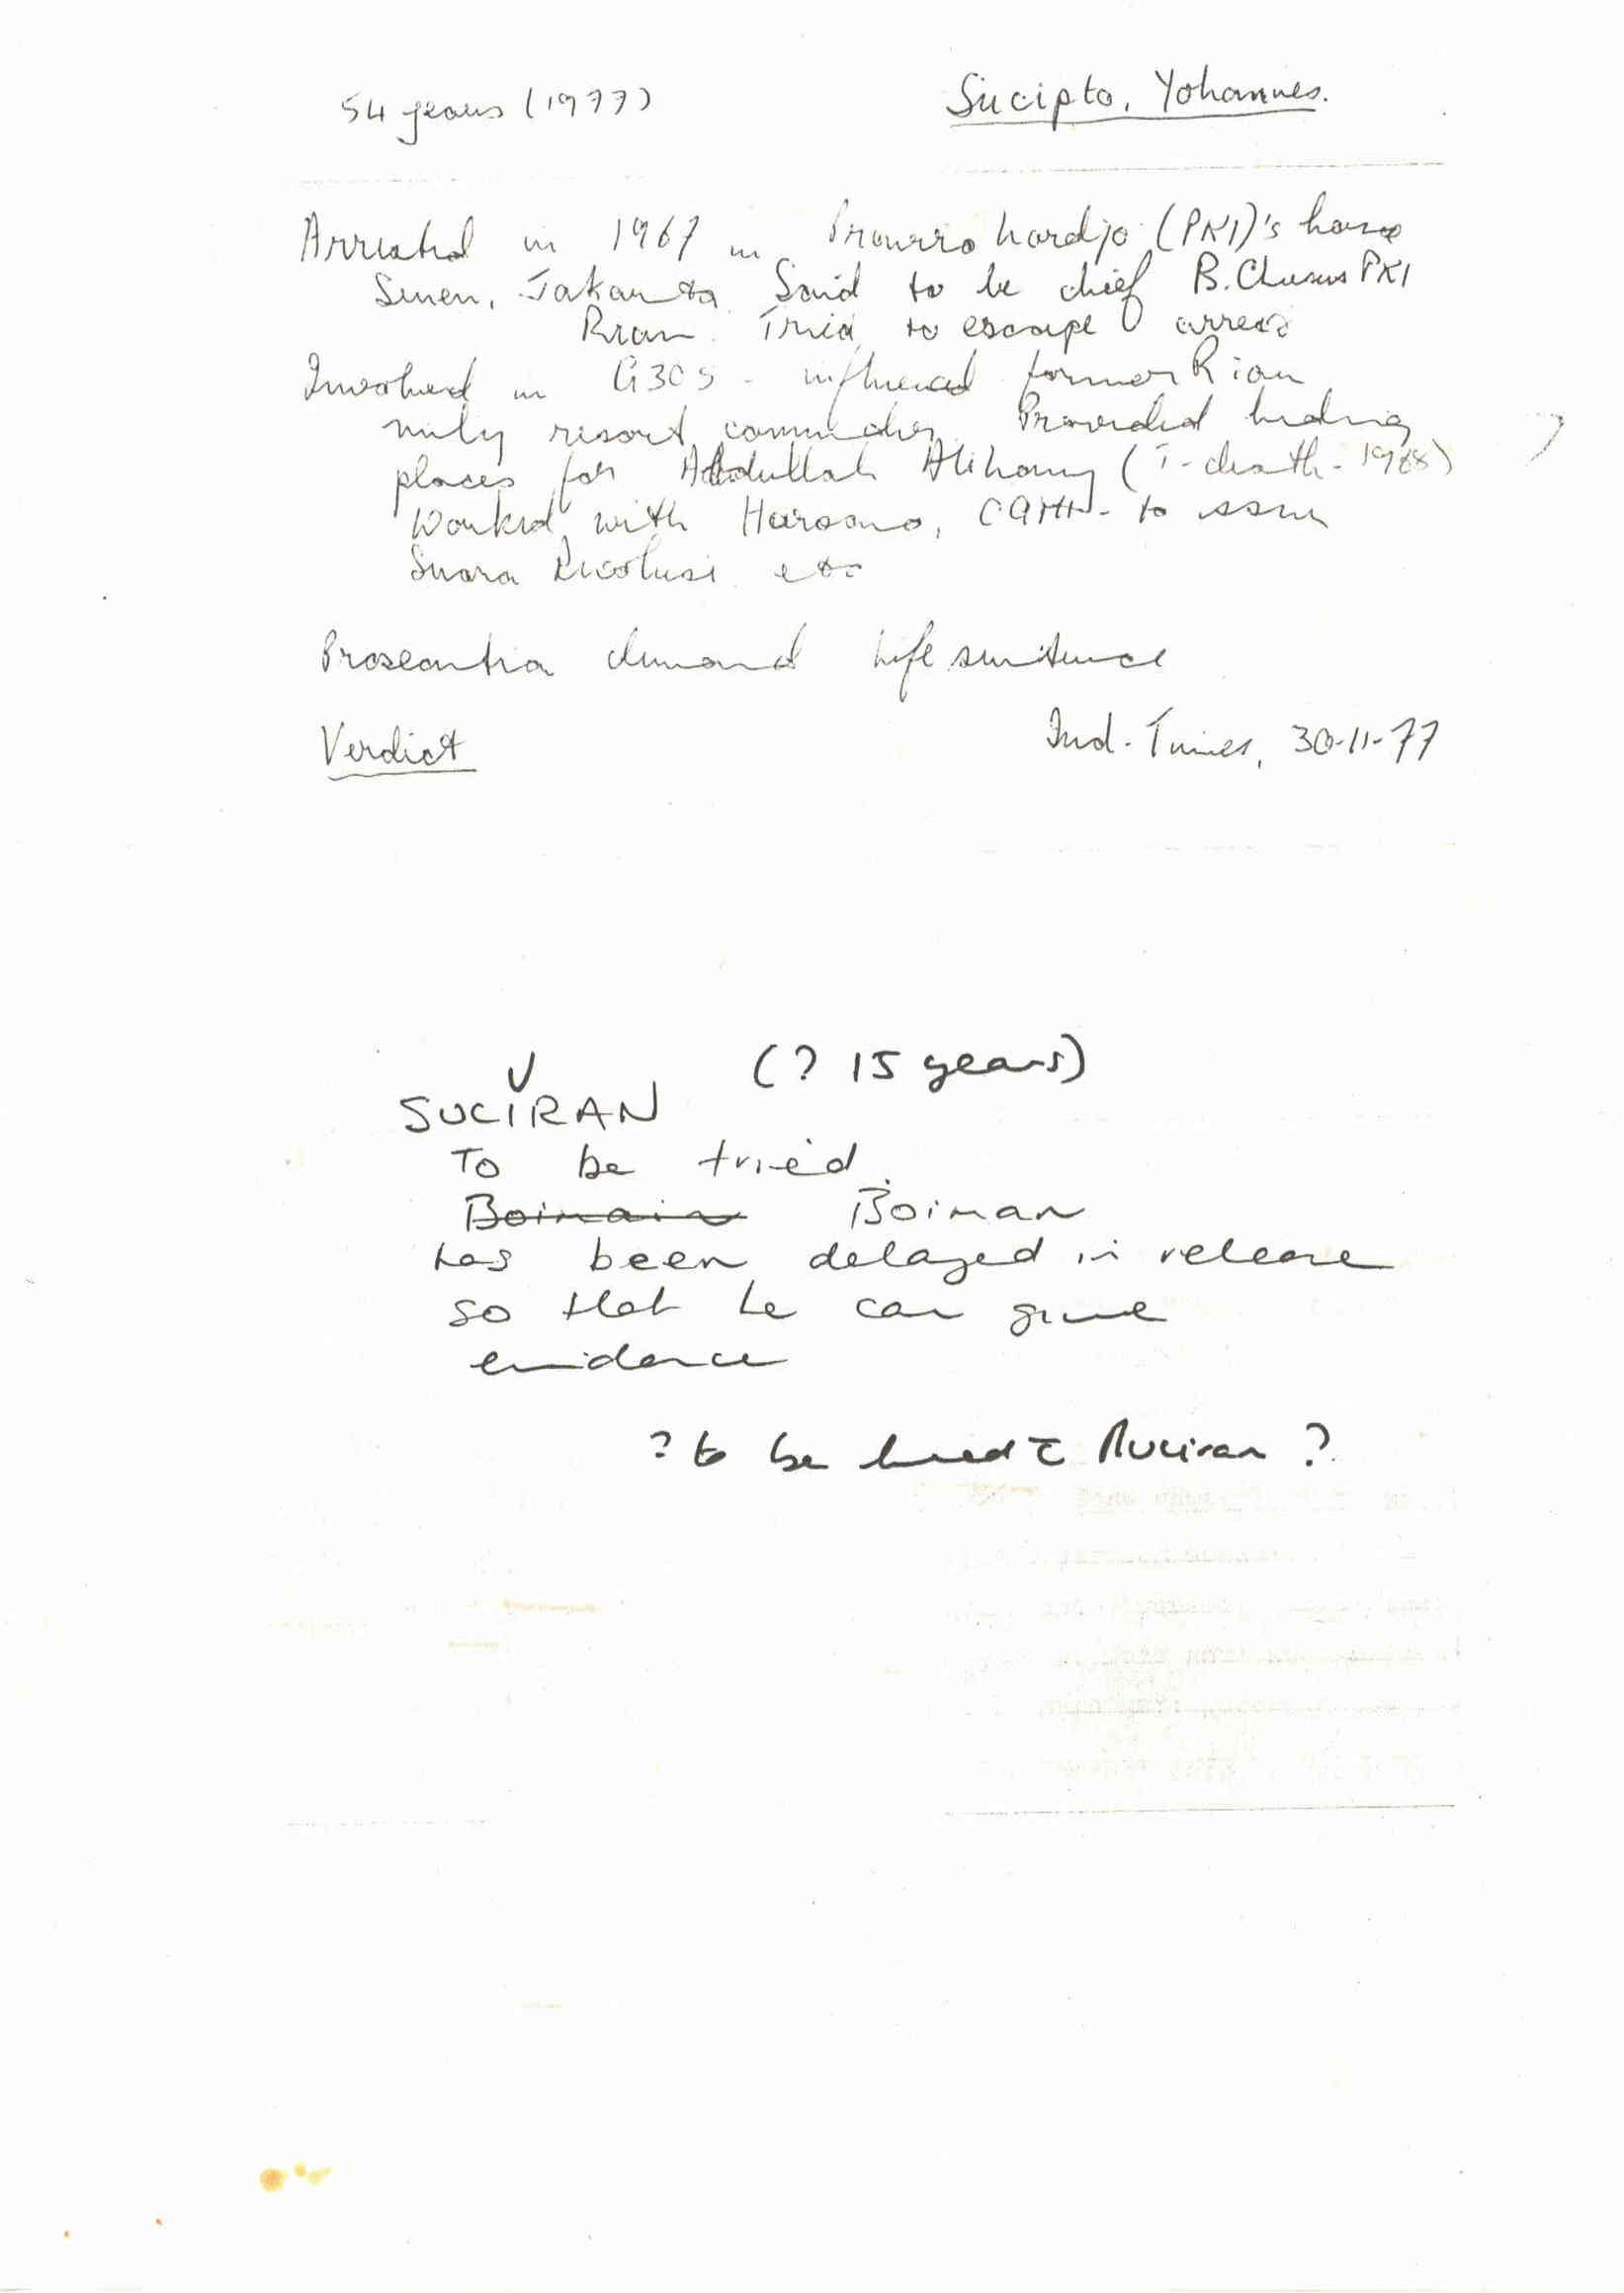 54 years (1977) Sucipto, Yohannes.
Arrested in 1967 in Prawirohardjo (PKI)'s house
Senen, Jakarta. Said to be chief B. Chusus PKI
Riau. Tried to escape arrest
Involved in G30S - influenced former Riau
mily resort commander. Provided hiding
places for Abdullah Alihamy (T-death-1968)
Worked with Harsono, CGMI - to issue
Suara Revolusi etc
Prosecution demand life sentence
Verdict Ind. Times, 30-11-77
SUCIRAN (? 15 years)
To be tried.
Boimain Boiman
has been delayed in release
so that he can give
evidence
? to be tried c̄ Ruciran ?